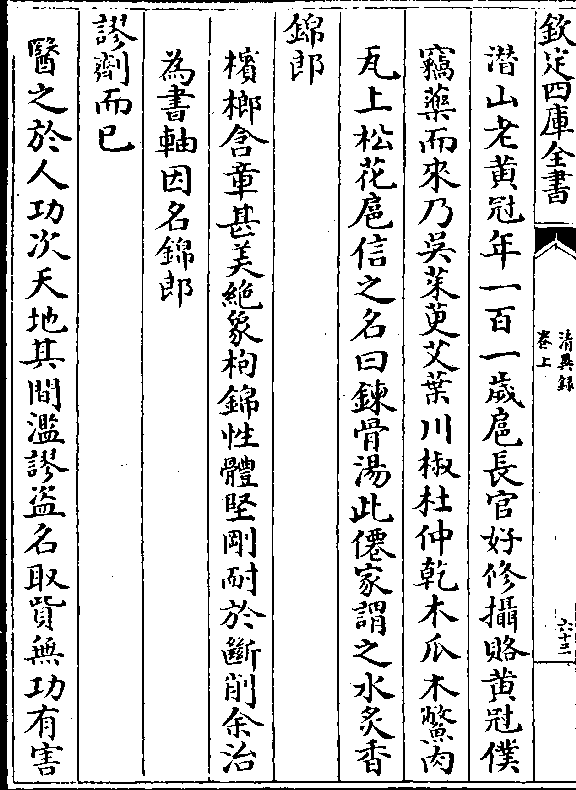 欽定四庫全書
清異録
卷上
六十三
潜山老黄冠年一百一歲扈長官好修攝賂黄冠僕
竊藥而來乃吳茱萸艾葉川椒杜仲乾木瓜木鱉肉
瓦上松花扈信之名曰鍊骨湯此僊家謂之水炙香
錦郎
檳榔含章甚美絶象枸錦性體堅剛耐於斷削余治
為書軸因名錦郎
謬劑而已
醫之於人功次天地其間濫謬盗名取貲無功有害